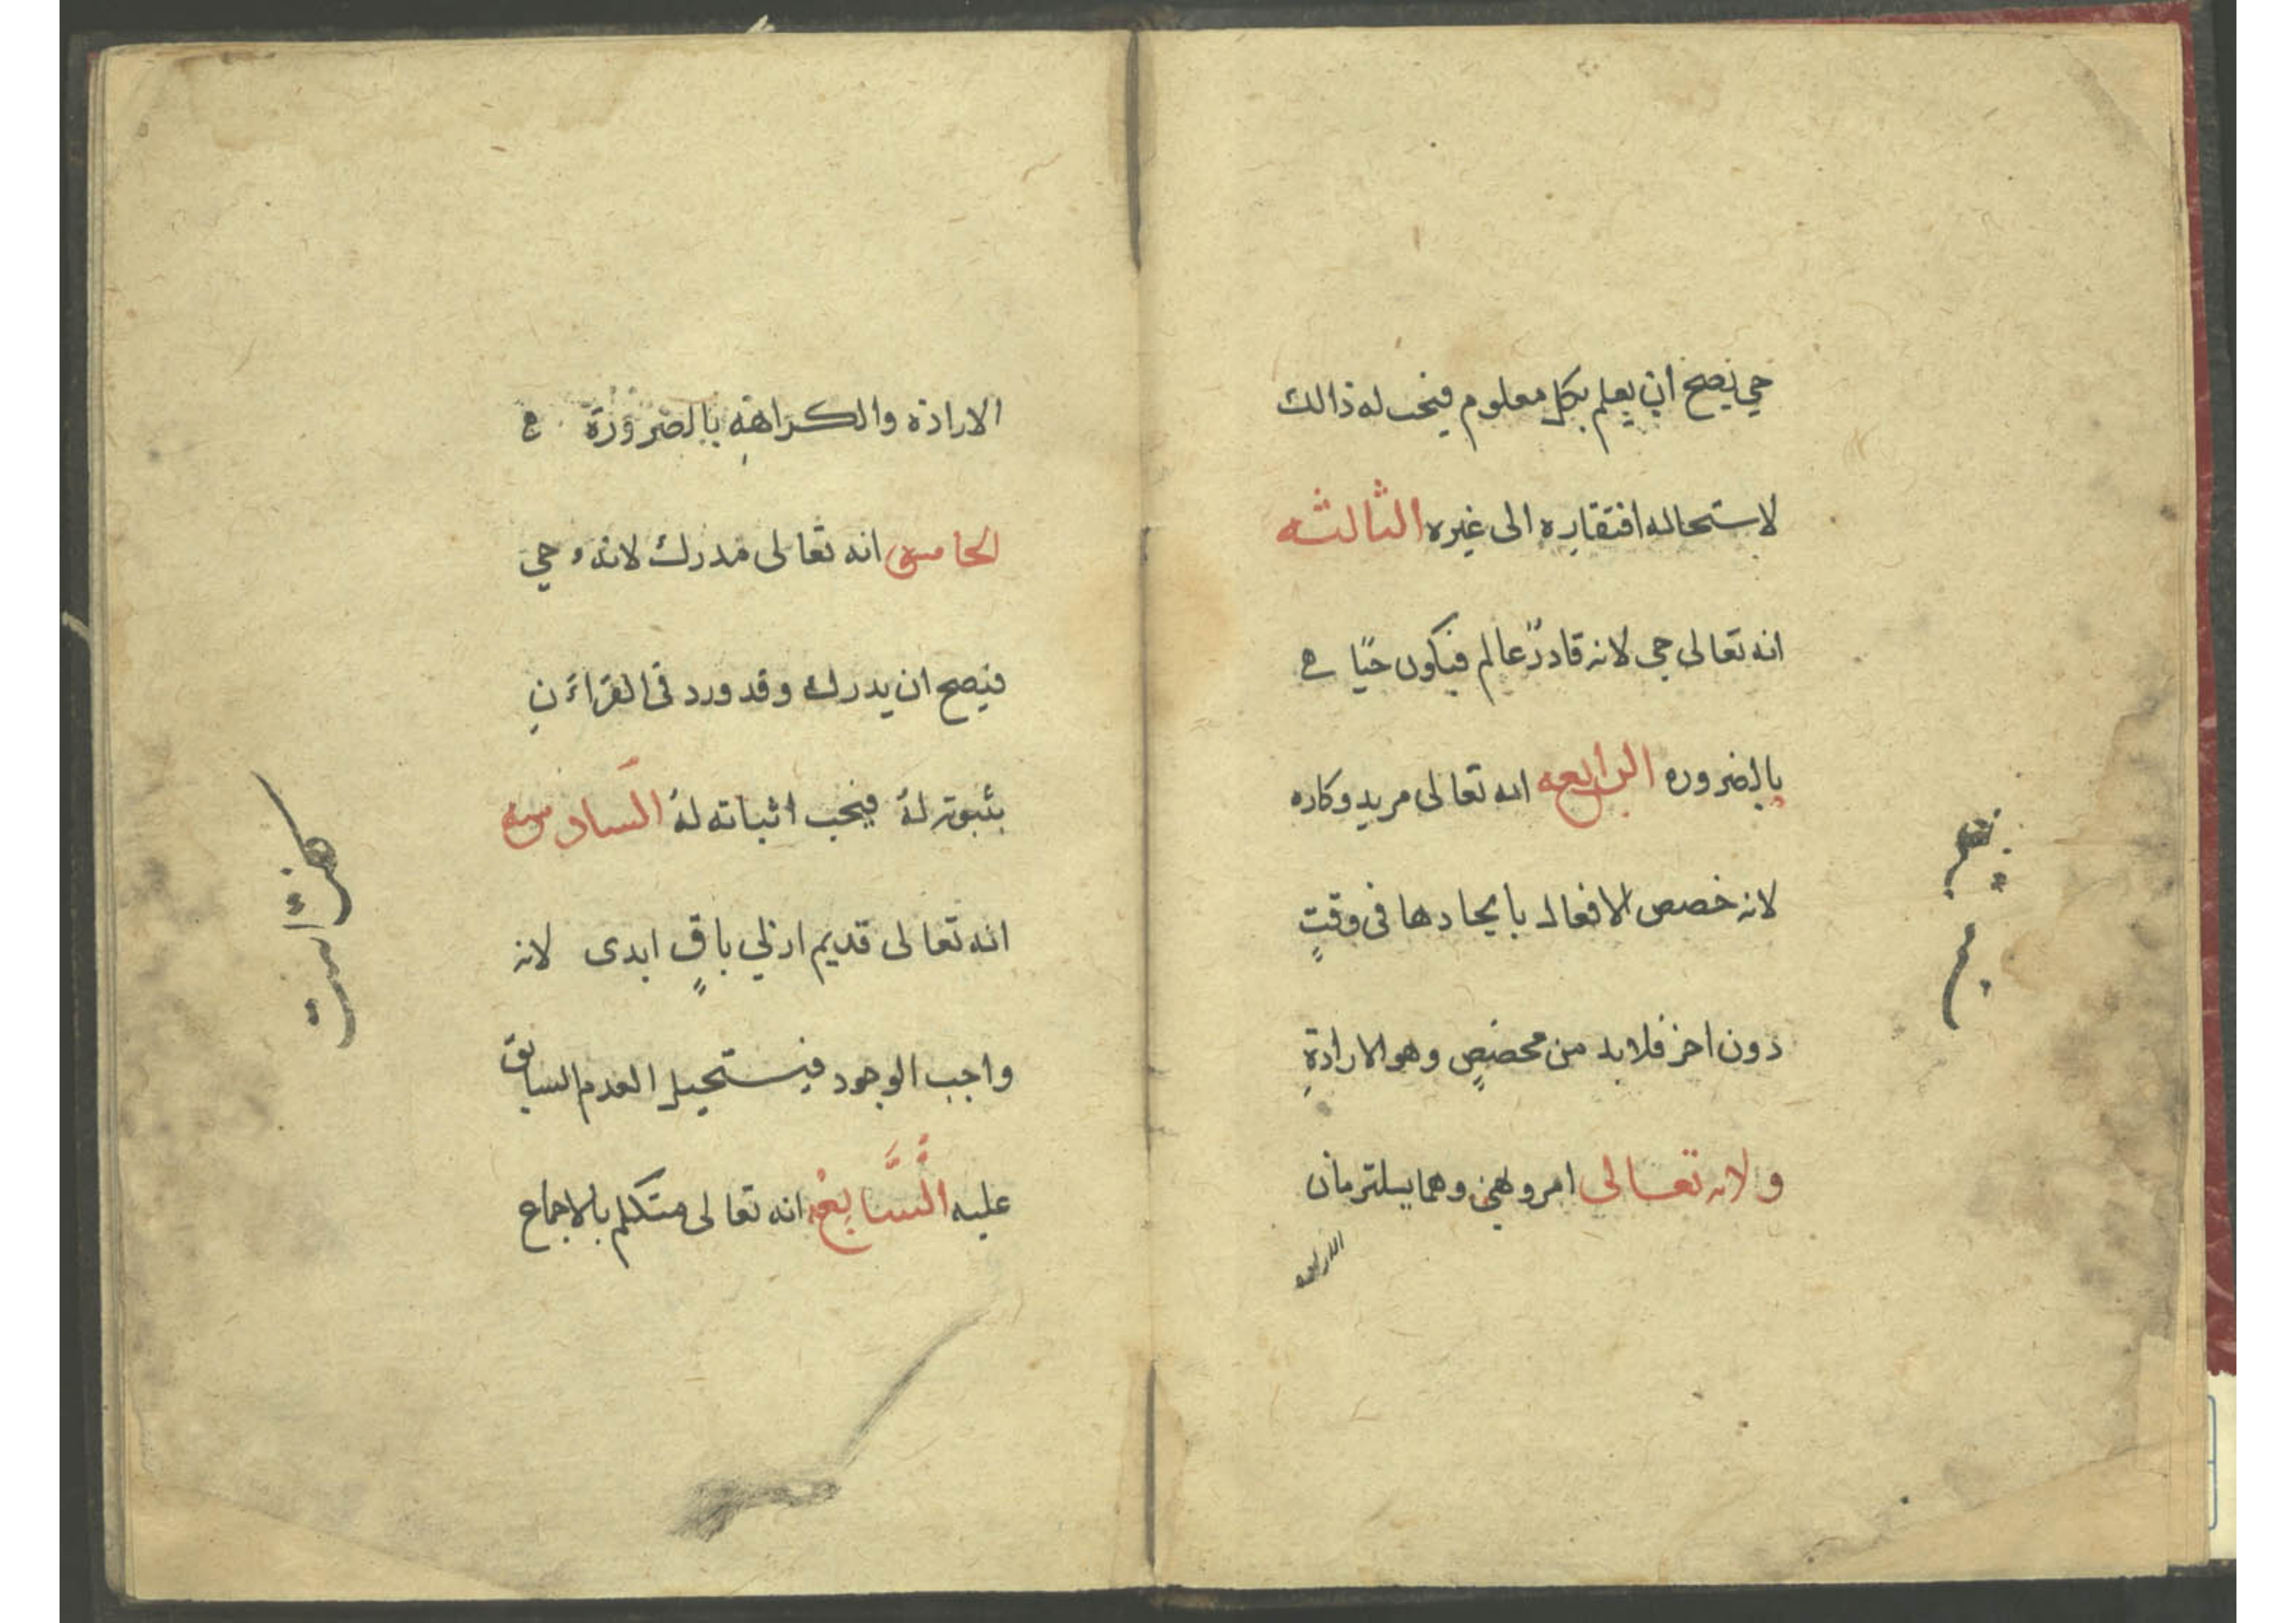 حي يصح ان يعلم بكل معلوم فيجب له ذالك
لاستحاله افتقاره الى غيره الثالثه
انه تعالى حي لانه قادر عالم فيكون حيًا
بالضروره الرابعه انه تعالى مريد وكاره
لانه خصص الافعال بايجادها فى وقتٍ
دون اخر فلابد من مخصصٍ وهو الارادةِ
ولانه تعالى امر ونهى وهما يستلزمان
الاراده
الارادة والكراهة بالضرورة
الخامس انه تعالى مدرك لانه حي
فيصح ان يدرك وقد ورد فى القراءن
بثبوته له فيجب اثباته له السادسه
انه تعالى قديم ازلي باقٍ ابدى لانه
واجب الوجود فيستحيل العدم السابق
عليه السَّابعه انه تعالى متكلم بالاجماع